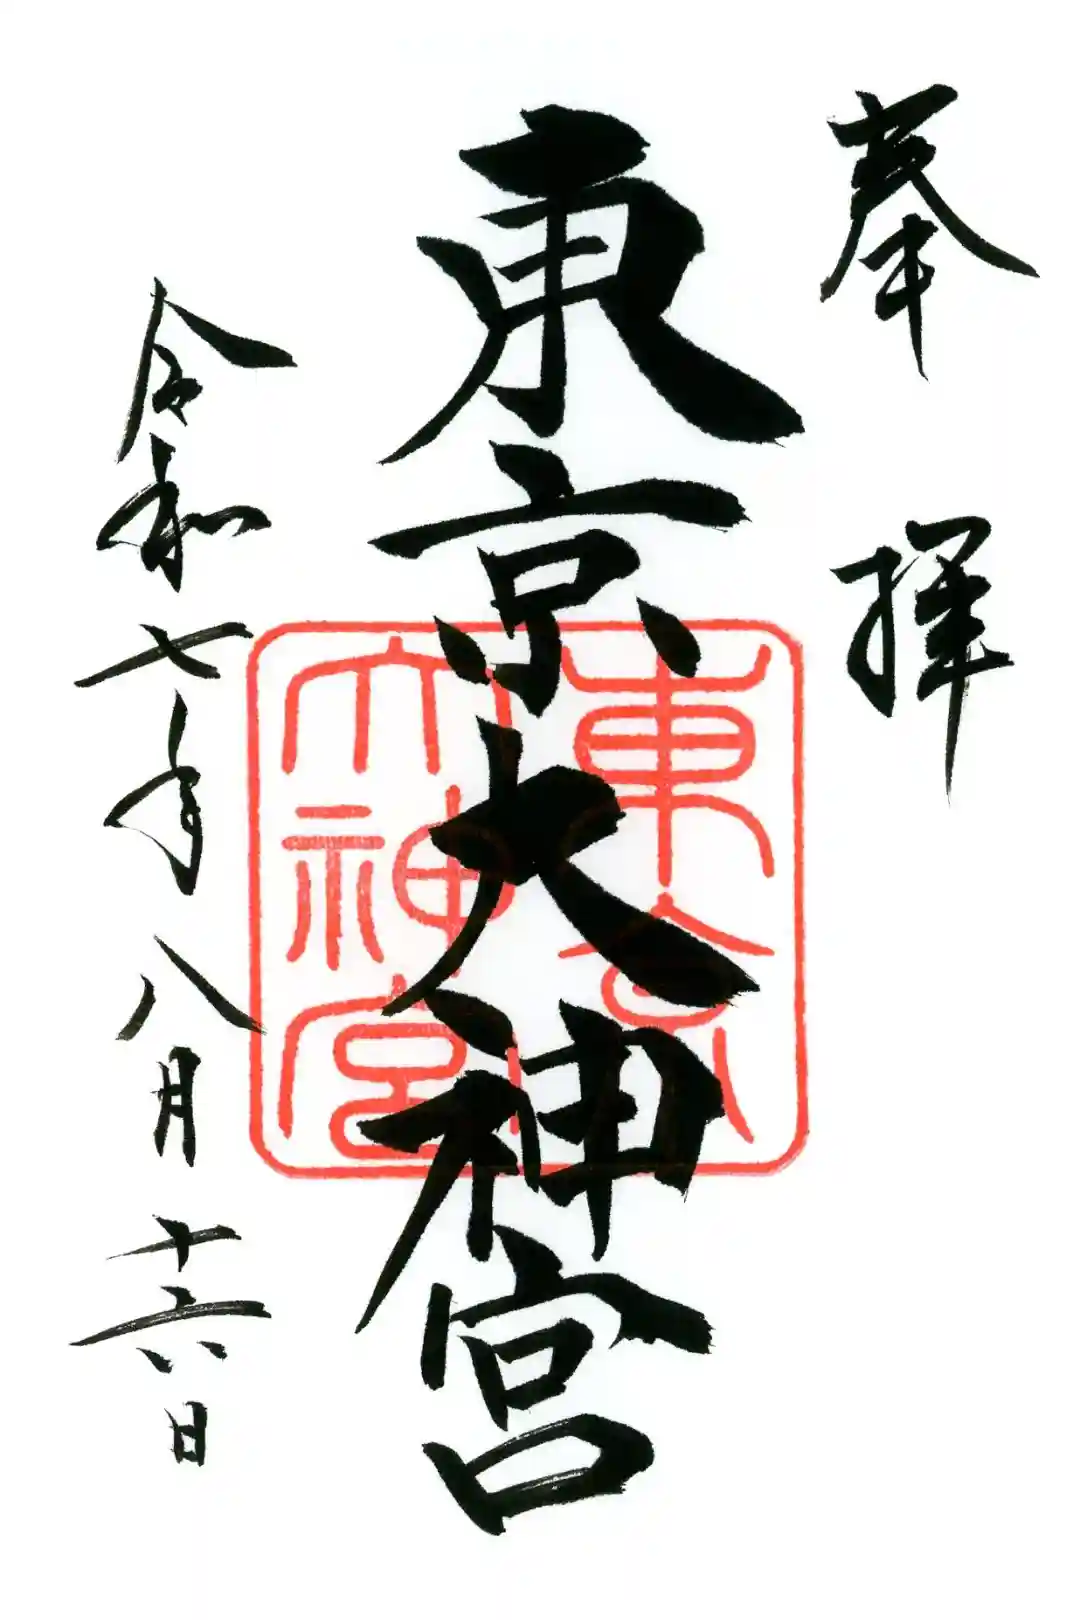 奉拝
東京大神宮
東京
大神宮
令和七年八月十六日